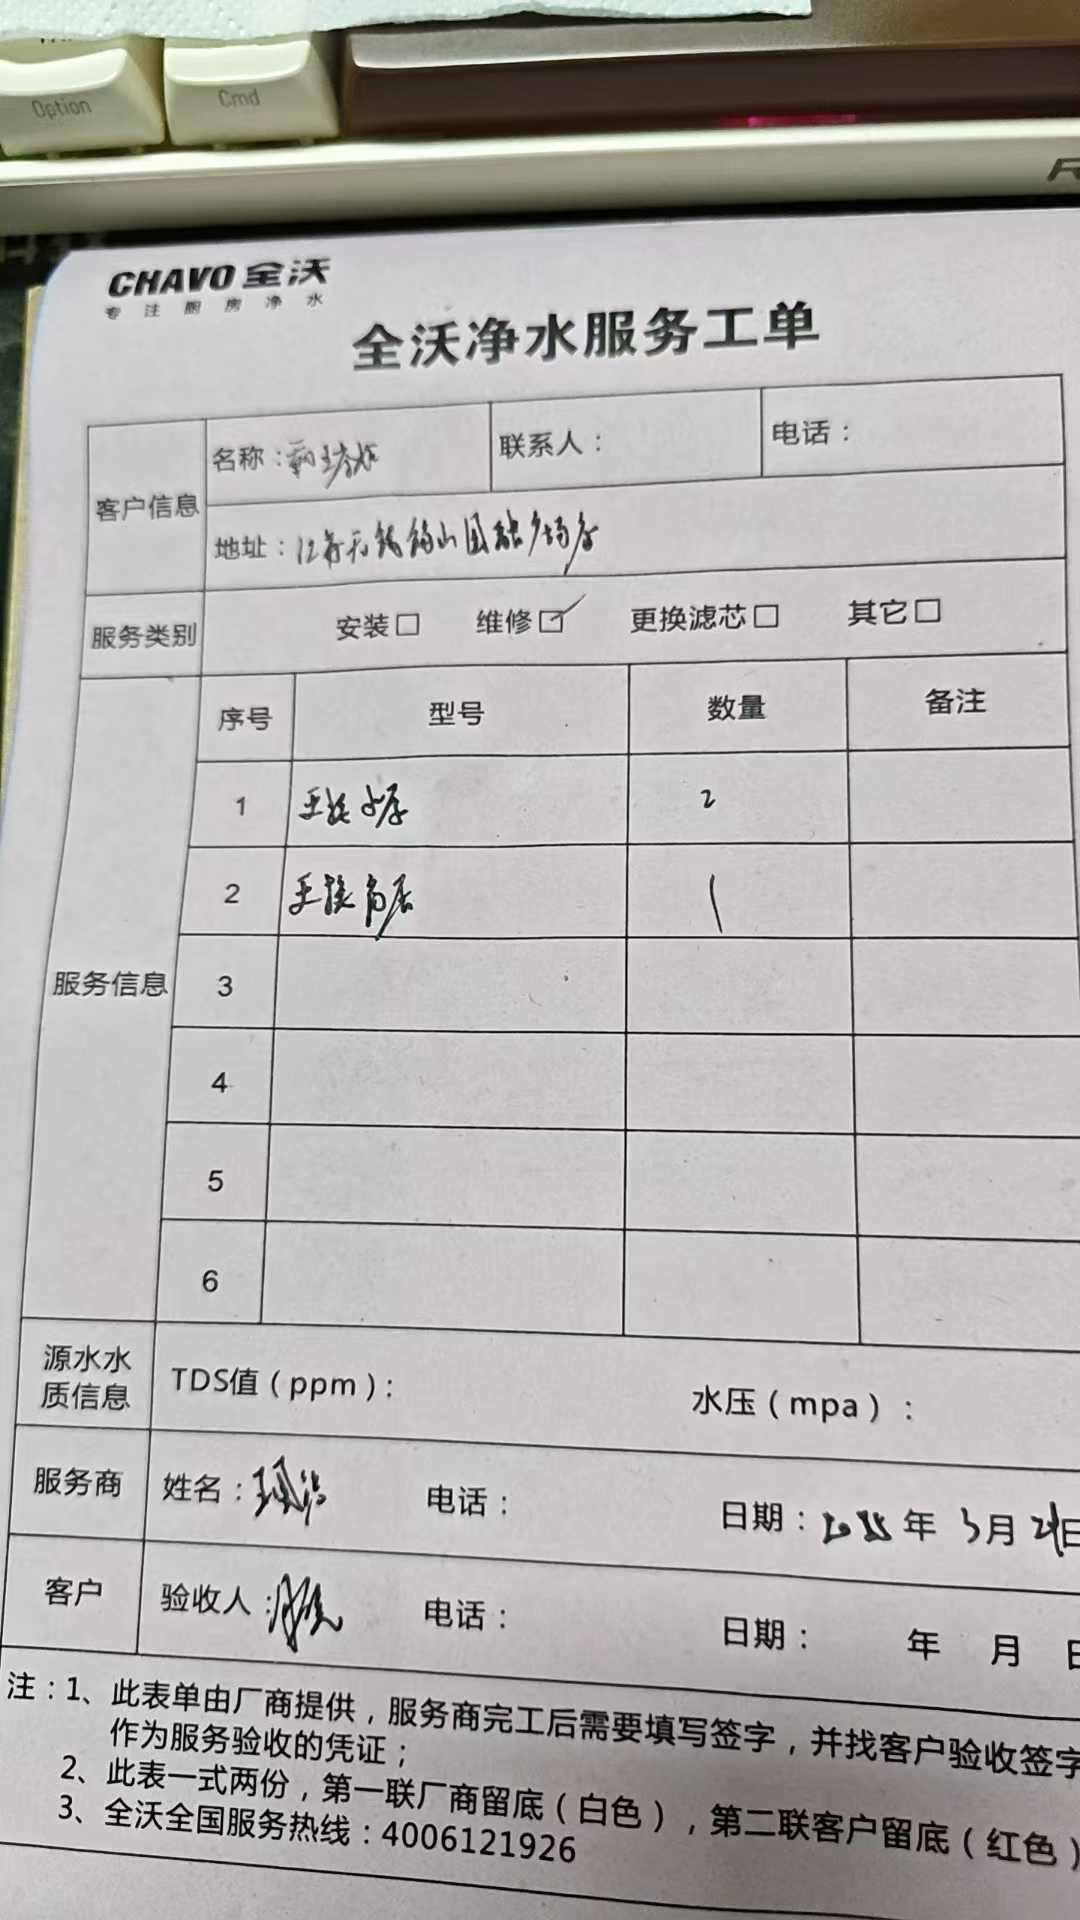 Option
Cmd
CHAVO 全沃
专注厨房净水
全沃净水服务工单
客户信息
名称：霸王茶姬
联系人：
电话：
地址：江苏无锡锡山国融广场店
服务类别
安装□ 维修☑ 更换滤芯□ 其它□
服务信息
序号 型号 数量 备注
1 更换 2
2 更换 1
3
4
5
6
源水水质信息
TDS值（ppm）：
水压（mpa）：
服务商
姓名：
电话：
日期： 年 3月 日
客户
验收人：
电话：
日期： 年 月 日
注：1、此表单由厂商提供，服务商完工后需要填写签字，并找客户验收签字
作为服务验收的凭证；
2、此表一式两份，第一联厂商留底（白色），第二联客户留底（红色）
3、全沃全国服务热线：4006121926